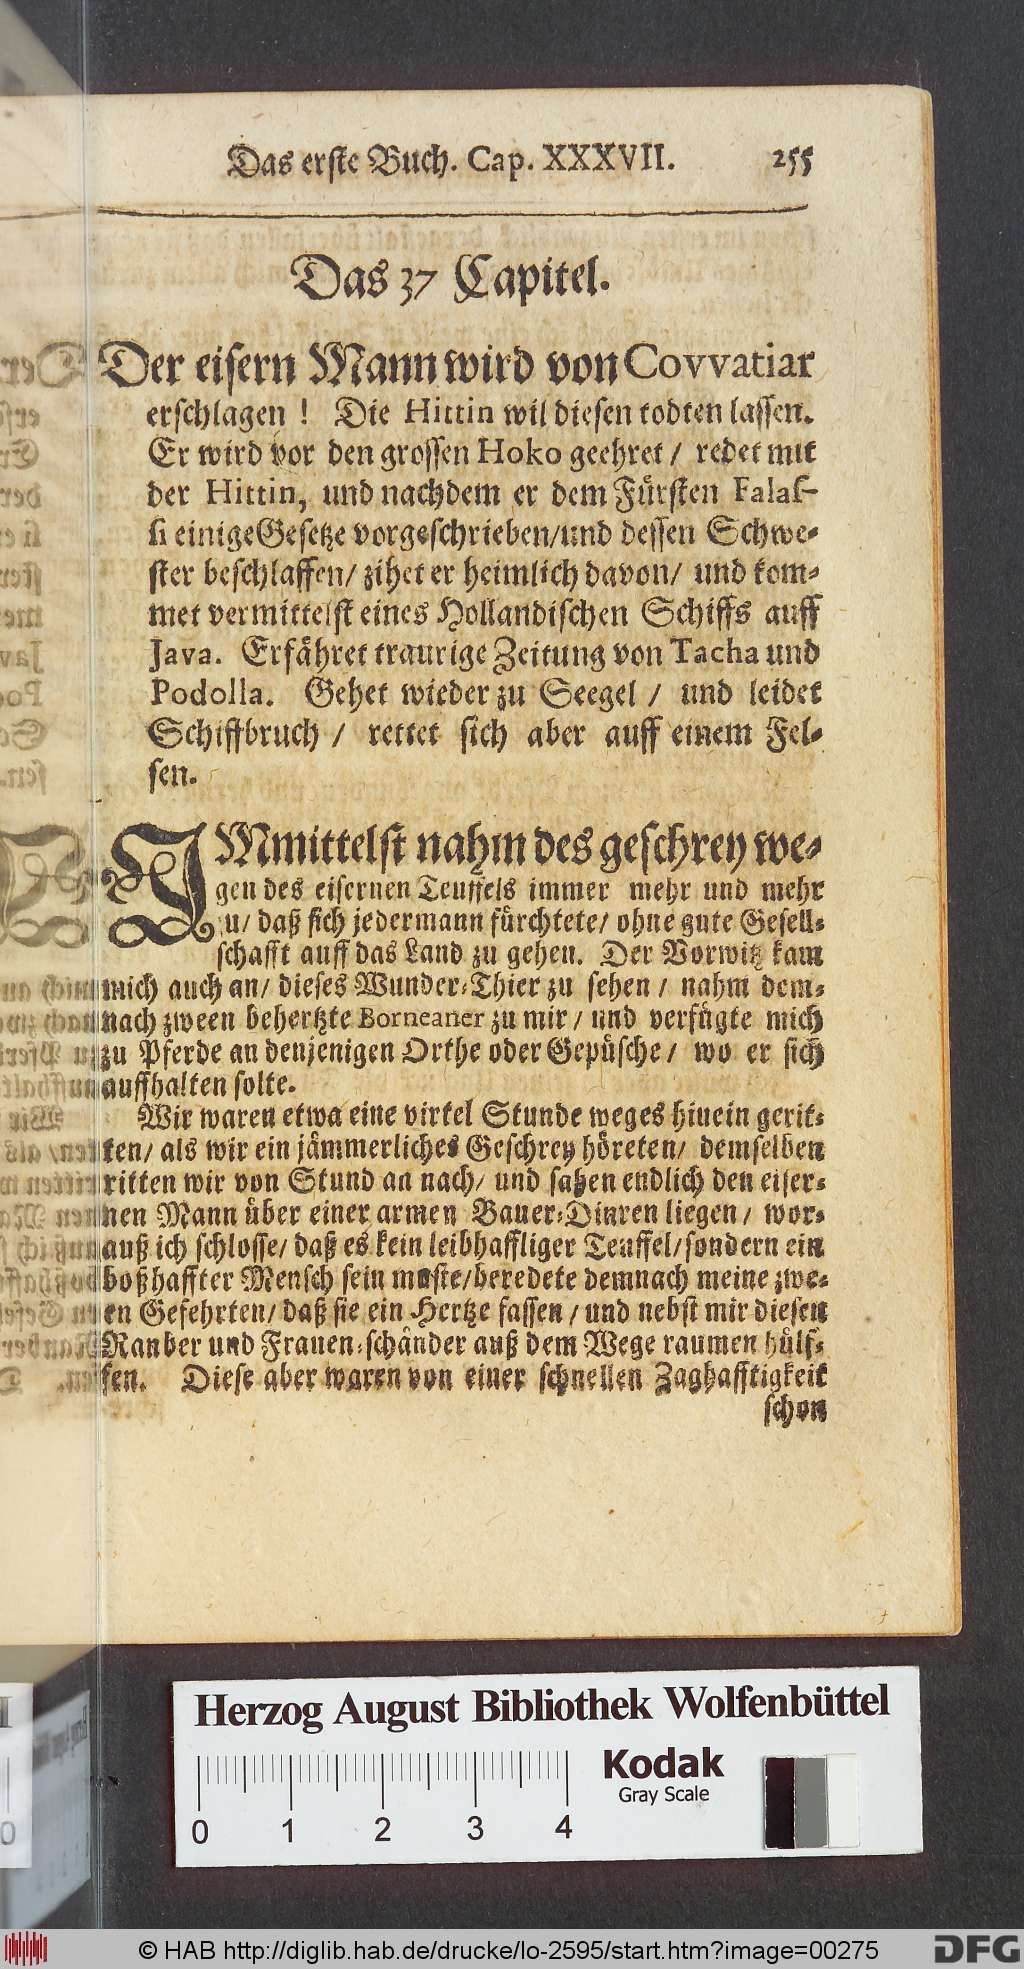 Das erste Buch. Cap. XXXVII. 255
Das 37 Capitel.
Der eisern Mann wird von Covvatiar
erschlagen ! Die Hittin wil diesen todten lassen.
Er wird vor den grossen Hoko geehret / redet mit
der Hittin, und nachdem er dem Fürsten Falas-
si einige Gesetze vorgeschrieben/und dessen Schwe-
ster beschlaffen/ zihet er heimlich davon/ und kom-
met vermittelst eines Hollandischen Schiffs auff
Java. Erfähret traurige Zeitung von Tacha und
Podolla. Gehet wieder zu Seegel / und leidet
Schiffbruch / rettet sich aber auff einem Fel-
sen.
IMmittelst nahm des geschrey we-
gen des eisernen Teuffels immer mehr und mehr
zu/ daß sich jedermann fürchtete/ ohne gute Gesell-
schafft auff das Land zu gehen. Der Vorwitz kam
mich auch an/ dieses Wunder-Thier zu sehen / nahm dem-
nach zween behertzte Borneaner zu mir / und verfügte mich
zu Pferde an denjenigen Orthe oder Gepüsche / wo er sich
auffhalten solte.
Wir waren etwa eine virtel Stunde weges hinein gerit-
ten/ als wir ein jämmerliches Geschrey höreten/ demselben
ritten wir von Stund an nach/ und sahen endlich den eiser-
nen Mann über einer armen Bauer-Dirnen liegen / wor-
auß ich schlosse/ daß es kein leibhafftiger Teuffel/sondern ein
boßhaffter Mensch sein muste/beredete demnach meine zwe-
en Gefehrten/ daß sie ein Hertze fassen / und nebst mir diesen
Rauber und Frauen-schänder auß dem Wege raumen hülf-
fen. Diese aber waren von einer schnellen Zaghafftigkeit
schon
Herzog August Bibliothek Wolfenbüttel
Kodak
Gray Scale
0 1 2 3 4
© HAB http://diglib.hab.de/drucke/lo-2595/start.htm?image=00275
DFG